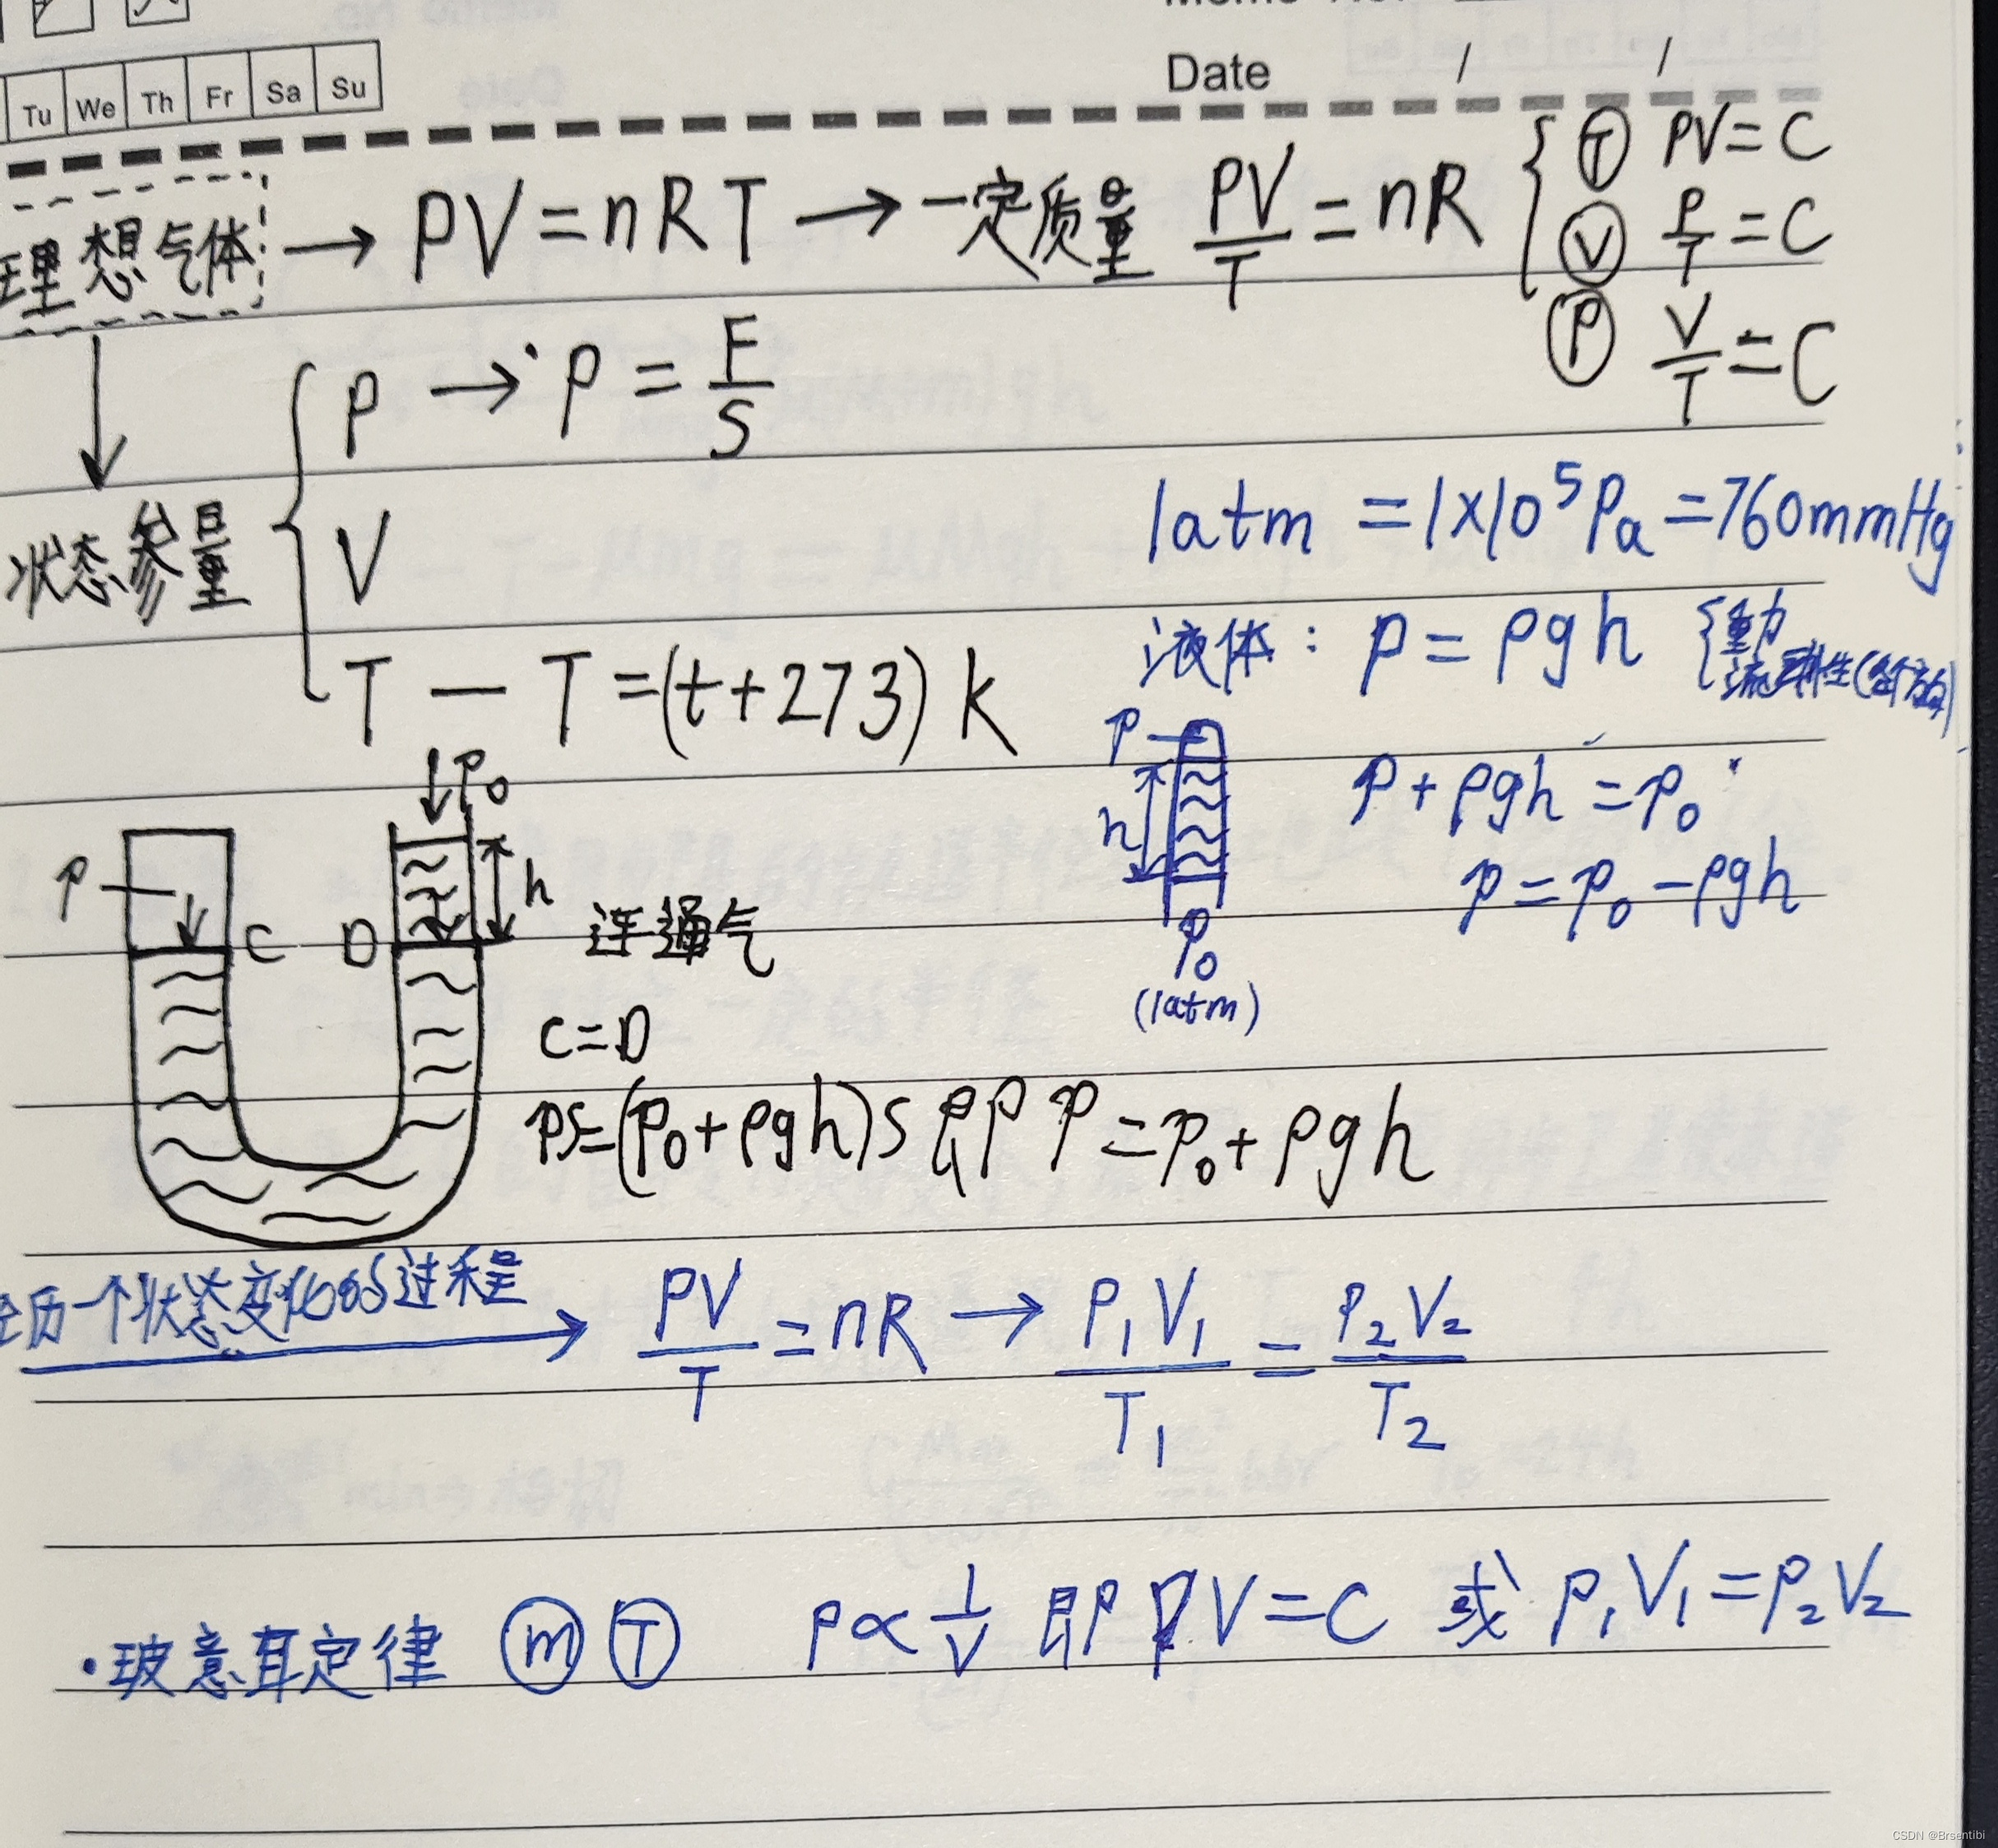 Date / /
Tu We Th Fr Sa Su
理想气体 → PV = nRT → 一定质量 PV/T = nR { Ⓣ PV = C
Ⓥ P/T = C
Ⓟ V/T = C
状态参量 { P → P = F/S
V
T — T = (t+273) k
1atm = 1×10⁵Pa = 760mmHg
液体: P = ρgh { 重力
P h P₀ (1atm)
P + ρgh = P₀
P = P₀ - ρgh
P C D P₀ h
连通气
C = D
PS = (P₀ + ρgh)S 即 P = P₀ + ρgh
经历一个状态变化的过程 → PV/T = nR → P₁V₁/T₁ = P₂V₂/T₂
·玻意耳定律 ⓜ Ⓣ P ∝ 1/V 即 PV = C 或 P₁V₁ = P₂V₂
CSDN @Brsentibi